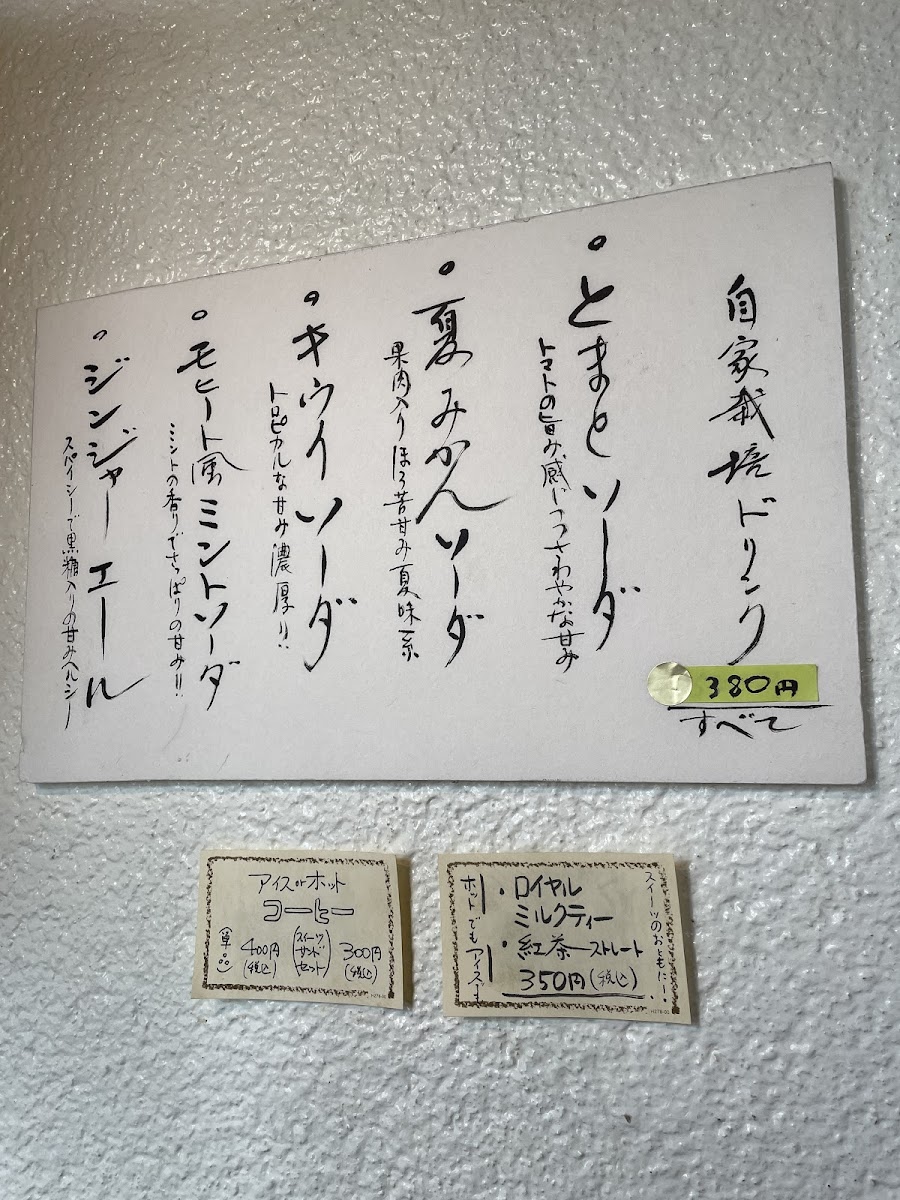 自家栽培ドリンク
380円
すべて
とまとソーダ
トマトの旨み感じつつさわやかな甘み
夏みかんソーダ
果肉入りほろ苦甘み夏味系
キウイソーダ
トロピカルな甘み濃厚!!
モヒート風ミントソーダ
ミントの香りでさっぱりの甘み!!
ジンジャーエール
スパイシーで黒糖入りの甘みヘルシー
アイスorホット
コーヒー
(単品)
400円
(税込)
(スイーツ
サンド
セット)
300円
(税込)
スイーツのおともにー!
・ロイヤル
ミルクティー
・紅茶ーストレート
350円(税込)
ホットでもアイスで